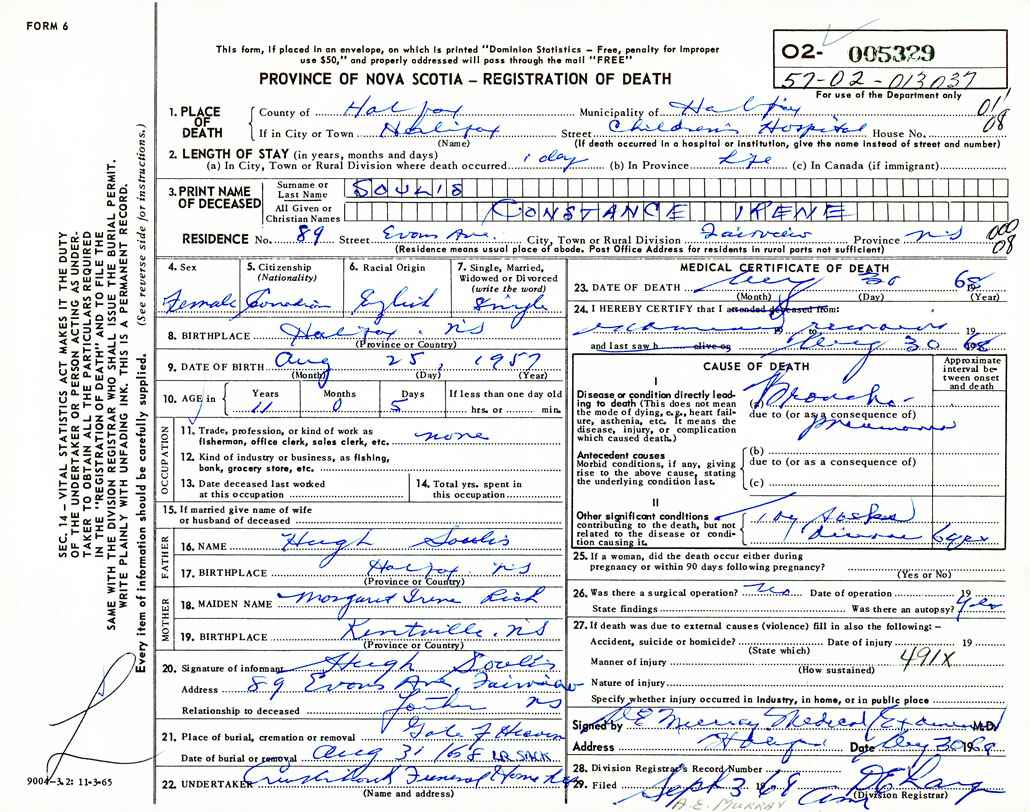 FORM 6
This form, if placed in an envelope, on which is printed "Dominion Statistics – Free, penalty for improper
use $50," and properly addressed will pass through the mail "FREE"
PROVINCE OF NOVA SCOTIA – REGISTRATION OF DEATH
O2- 005329
57-02-013037
For use of the Department only
1. PLACE OF DEATH
County of Halifax Municipality of Halifax 011
If in City or Town Halifax Street Children's Hospital House No. 08
(Name) (If death occurred in a hospital or institution, give the name instead of street and number)
2. LENGTH OF STAY (in years, months and days)
(a) In City, Town or Rural Division where death occurred 1 day (b) In Province Life (c) In Canada (if immigrant)
3. PRINT NAME OF DECEASED
Surname or Last Name SOULIS
All Given or Christian Names CONSTANCE IRENE
RESIDENCE No. 89 Street Evans Ave. City, Town or Rural Division Fairview Province NS 000 08
(Residence means usual place of abode. Post Office Address for residents in rural parts not sufficient)
4. Sex
Female
5. Citizenship (Nationality)
Canadian
6. Racial Origin
English
7. Single, Married, Widowed or Divorced (write the word)
Single
8. BIRTHPLACE Halifax. NS
(Province or Country)
9. DATE OF BIRTH Aug 25, 1957
(Month) (Day) (Year)
10. AGE in Years 11 Months 0 Days 5 If less than one day old hrs. or min.
OCCUPATION
11. Trade, profession or kind of work as fisherman, office clerk, sales clerk, etc. none
12. Kind of industry or business, as fishing, bank, grocery store, etc.
13. Date deceased last worked at this occupation
14. Total yrs. spent in this occupation
15. If married give name of wife or husband of deceased
FATHER
16. NAME Hugh Soulis
17. BIRTHPLACE Halifax NS
(Province or Country)
MOTHER
18. MAIDEN NAME Margaret Irene Rich
19. BIRTHPLACE Kentville. NS
(Province or Country)
20. Signature of informant Hugh Soulis
Address 89 Evans Ave, Fairview
Relationship to deceased Father NS
21. Place of burial, cremation or removal Gate of Heaven
Date of burial or removal Aug 31/68 LR. SACK.
22. UNDERTAKER Cruikshank Funeral Home
(Name and address)
MEDICAL CERTIFICATE OF DEATH
23. DATE OF DEATH Aug 30 1968
(Month) (Day) (Year)
24. I HEREBY CERTIFY that I attended deceased from:
19 19
and last saw h alive on Aug 30 1968
CAUSE OF DEATH
Approximate interval between onset and death
I
Disease or condition directly leading to death (This does not mean the mode of dying, e.g., heart failure, asthenia, etc. It means the disease, injury, or complication which caused death.)
(a) Broncho-
due to (or as a consequence of)
pneumonia
Antecedent causes
Morbid conditions, if any, giving rise to the above cause, stating the underlying condition last.
(b)
due to (or as a consequence of)
(c)
II
Other significant conditions contributing to the death, but not related to the disease or condition causing it.
Tay Sachs
disease
25. If a woman, did the death occur either during pregnancy or within 90 days following pregnancy?
(Yes or No)
26. Was there a surgical operation? No Date of operation 19
State findings Was there an autopsy? Yes
27. If death was due to external causes (violence) fill in also the following:–
Accident, suicide or homicide? Date of injury 19
(State which)
Manner of injury 491X
(How sustained)
Nature of injury
Specify whether injury occurred in Industry, in home, or in public place
Signed by AE Murray Medical Examiner M.D.
Address Halifax Date Aug 30 1968
28. Division Registrar's Record Number
29. Filed Sept 3/68
(Division Registrar)
A.E. MURRAY
SEC. 14 – VITAL STATISTICS ACT MAKES IT THE DUTY
OF THE UNDERTAKER OR PERSON ACTING AS UNDER-
TAKER TO OBTAIN ALL THE PARTICULARS REQUIRED
IN THE "REGISTRATION OF DEATH" AND TO FILE THE
SAME WITH THE DIVISION REGISTRAR WHO SHALL ISSUE THE BURIAL PERMIT.
WRITE PLAINLY WITH UNFADING INK. THIS IS A PERMANENT RECORD.
Every item of information should be carefully supplied. (See reverse side for instructions.)
9004-3.2: 11-3-65